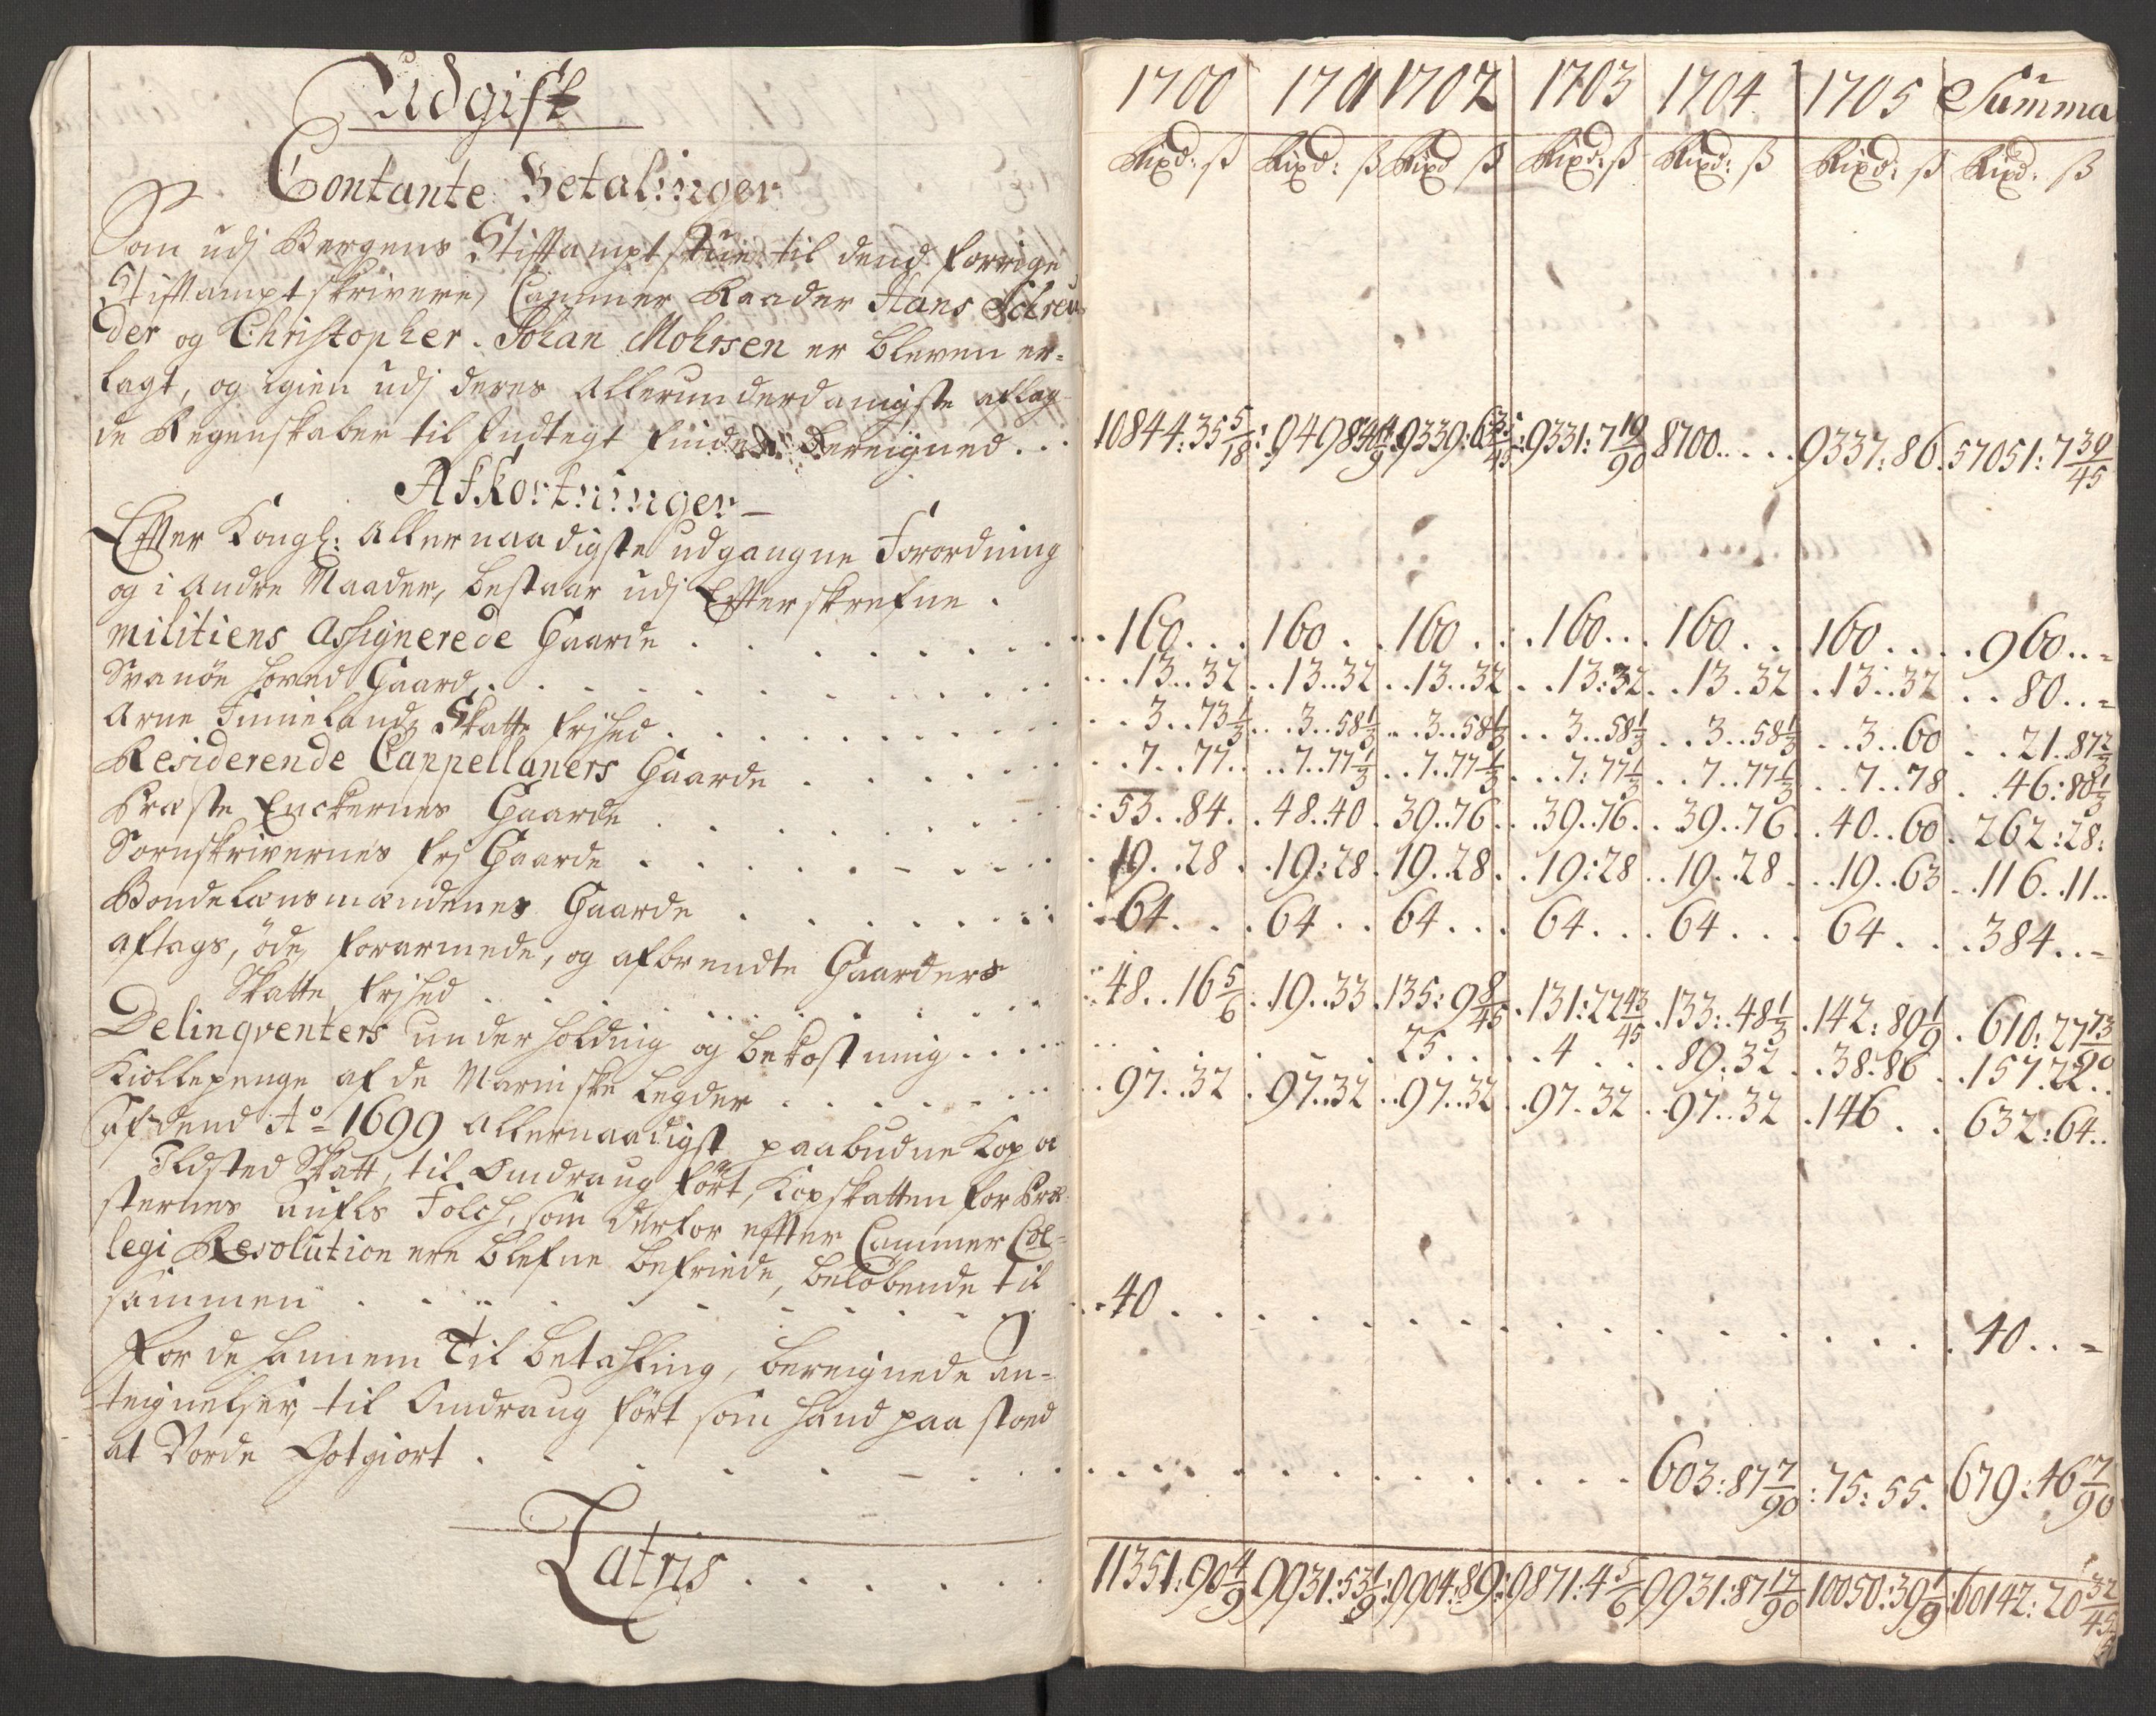 Udgift
Contante Betalinger
Som udj Bergens Stiftampt stue til dend forrige
Stiftamptskrivere, Cammer Raader Hans Schreu-
der og Christopher Johan Mohrsen er bleven er-
lagt, og igien udj deres allerunderdanigste aflag-
de Regenskaber til Indtegt findes bereigned . .
Afkortninger
Effter Kongl: allernaadigste udgangne Forordning
og i andre Maader, bestaar udj Effterskrefne .
militiens Assignerede Gaarde
Svanöe hoved Gaard
Arne Finnelands Skatte frjhed
Residerende Cappellaners Gaarde
Præste Enckernes Gaarde
Sornskrivernes frj Gaarde
Bondelænsmændenes Gaarde
aftags, öde, forarmede, og afbrendte Gaarders
Skatte frjhed
Delinqventers underholdning og bekostning
Kiollepenge af de Mariniske Legder
af dend Ao 1699 allernaadigst paabudne Kop og
Ildsted Skatt, til Omdraug fört, Kopskatten for Præ-
sternes Folch, som derfor effter Cammer Col-
legi Resolution ere blefne befriede, belöbende til
sammen
for de hannem til betahling, bereignede an-
teignelser, til Omdraug fört som hand paa stoed
at Vorde Gotgiort
Latris
1700 1701 1702 1703 1704 1705 Summa
Rixd: ß Rixd: ß Rixd ß Rixd: ß Rixd: ß Rixd: ß Rixd: ß
10844:35 5/18 9331:7 19/90 8700 9337:86 57051:7 39/45
160 160 160 160 160 160 960
13..32 13..32 13..32 13:32 13.32 13..32 80
3..73 1/3 3..58 1/3 3..58 1/3 3..58 1/3 3..58 1/3 3..60 21.87 2/3
7..77 7..77 1/3 7..77 1/3 7:77 1/3 7..77 1/3 7..78 46:80 1/3
53..84 48..40 39..76 39..76 39..76 40..60 262:28
19..28 19:28 19..28 19:28 19..28 19..63 116..11
64 64 64 64 64 64 384
48..16 5/6 19..33 135:9 8/45 131:22 43/45 133:48 1/3 142:89 1/9 610:27 73/90
25 4 89.32 38.86 157.22
97..32 97..32 97..32 97.32 97..32 146 632:64
40 40
603:87 7/90 75:55 679:46 7/90
11351:90 4/9 9931:53 1/9 9904:89 9871:4 5/6 9931:87 17/90 10050:39 1/9 60142:20 32/45